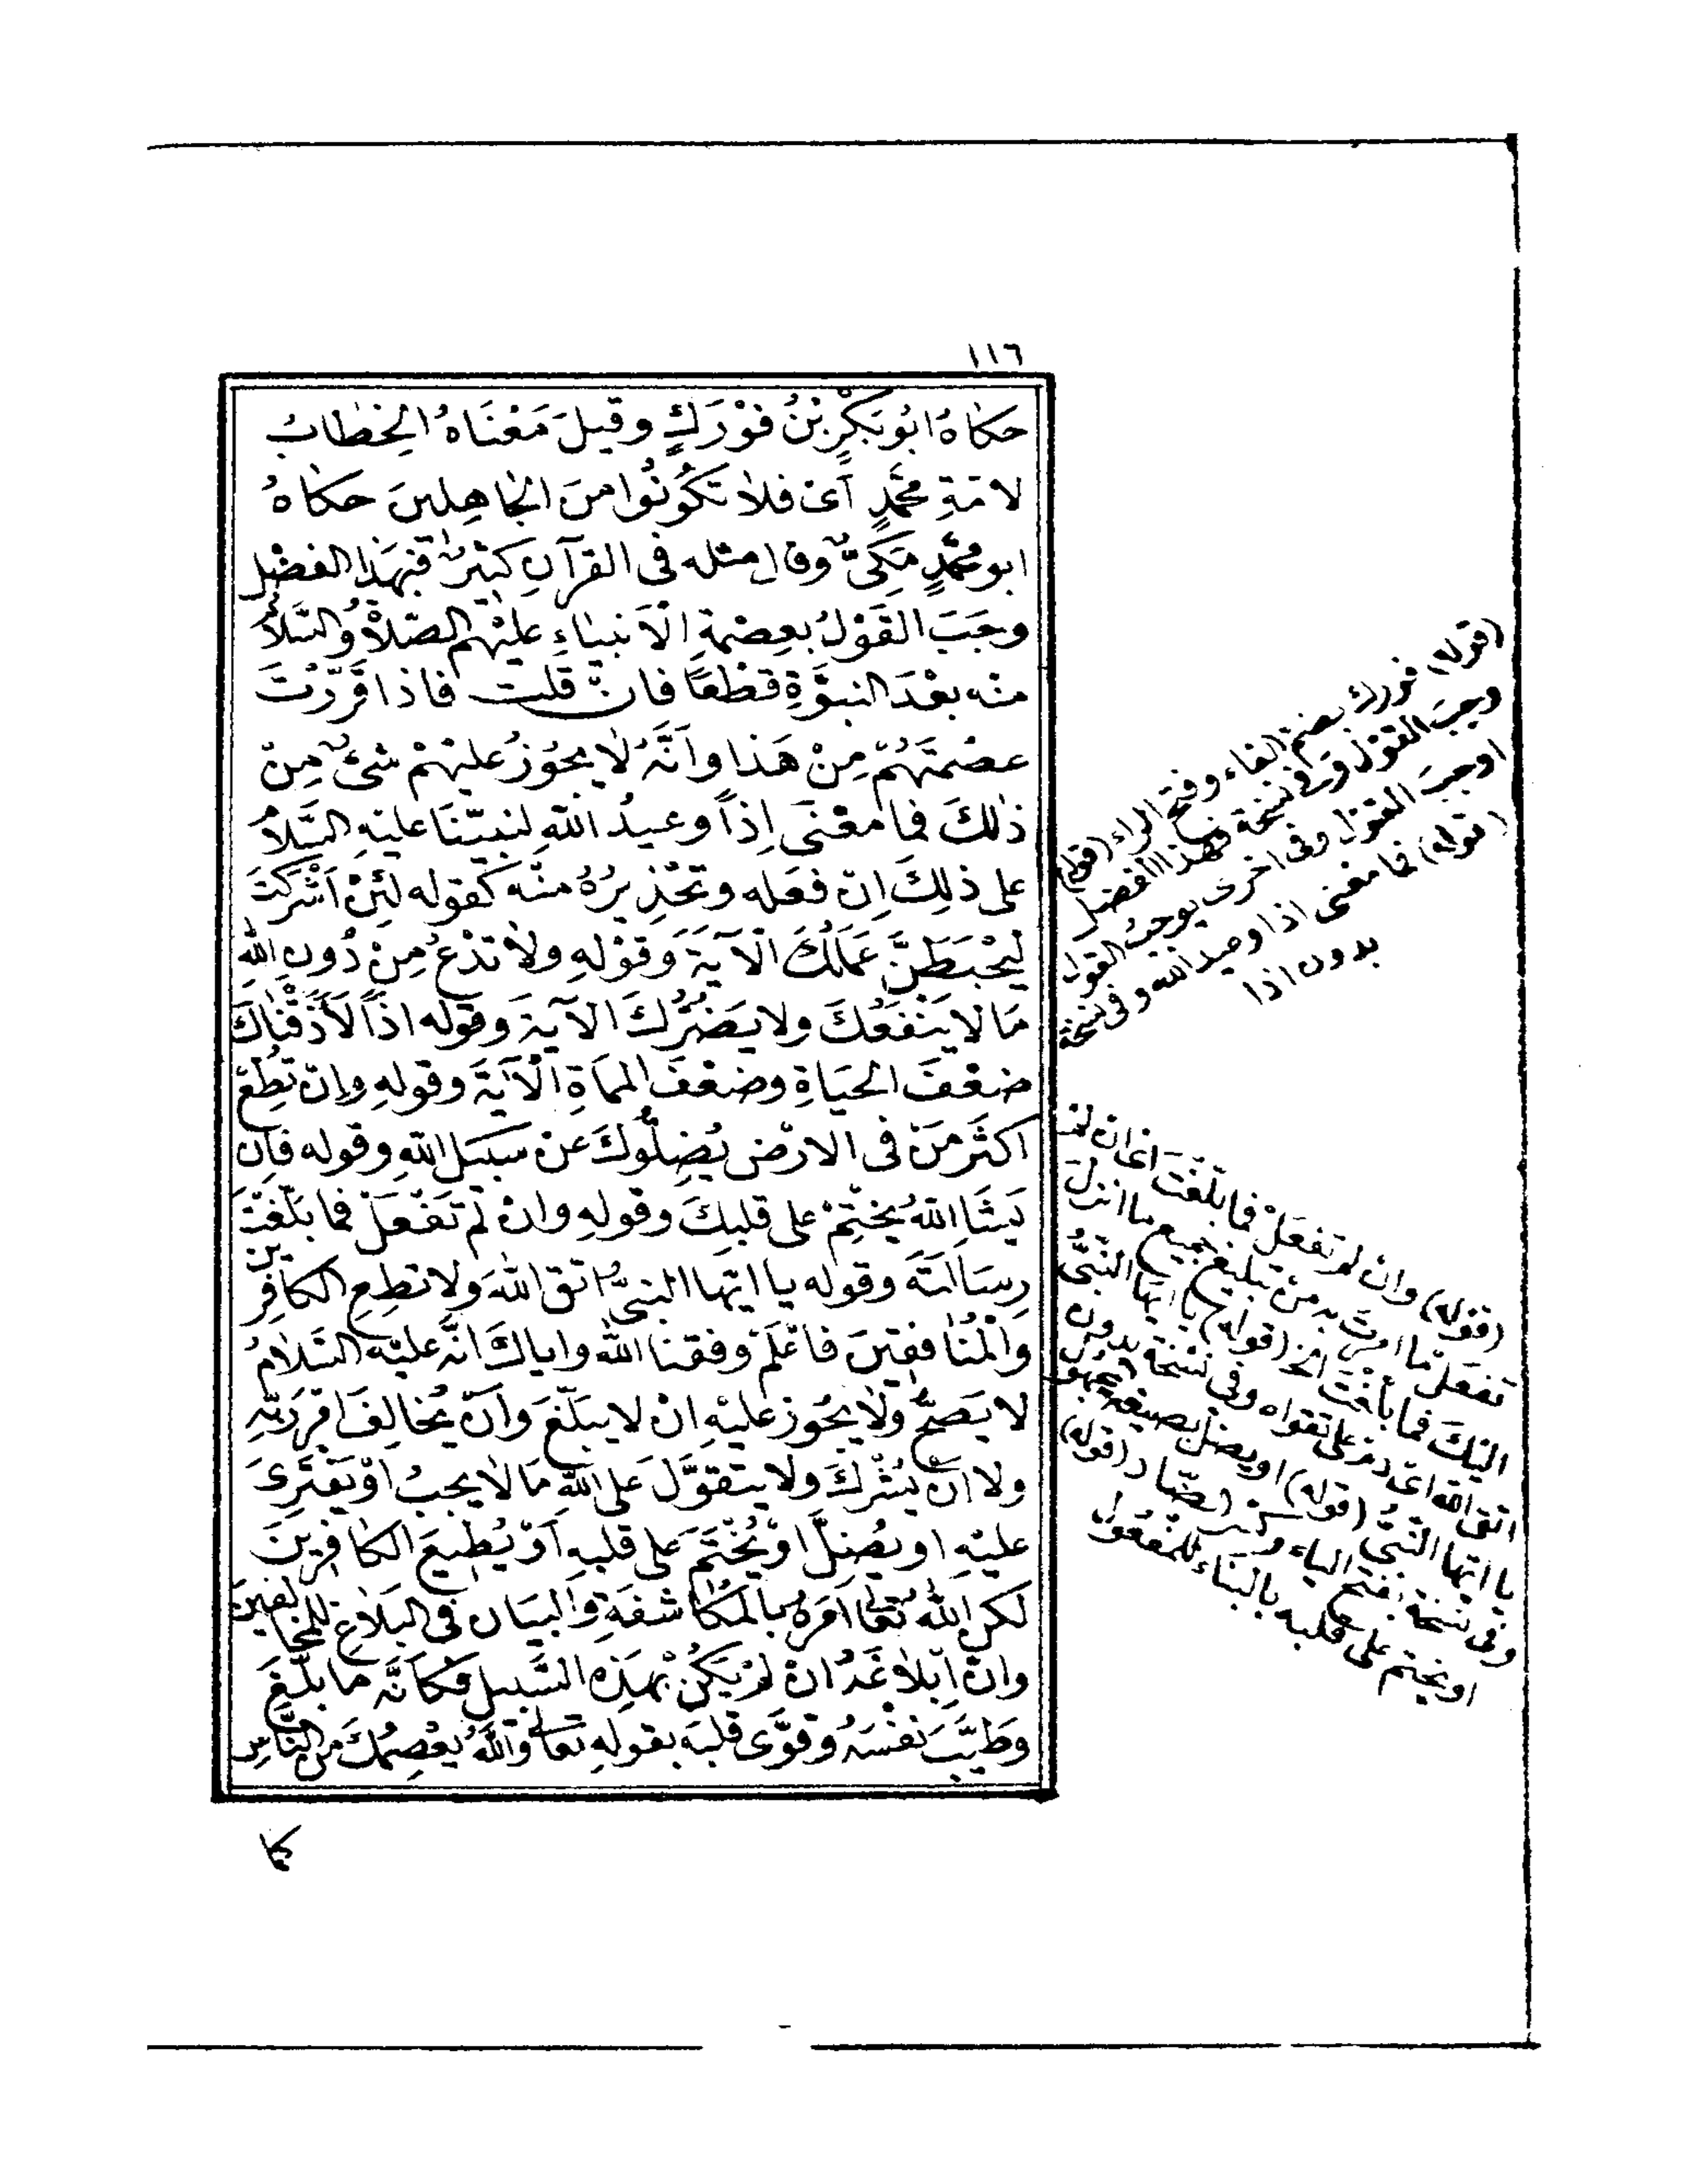 ١١٦
حَكَاهُ ابُو بَكْرِ بْنُ فَوْرَكٍ وقيلَ مَعْنَاهُ الخِطَابُ
لامّةِ مُحَمَّدٍ آى فلا تَكُونُوا منَ الجَاهِلينَ حكاهُ
ابو محمَّدٍ مَكِّىٌّ وقال مثله فى القرآنِ كثيرٌ فبهَذا الفضْلِ
وجَبَ القَوْلُ بعِصْمةِ الْاَنبيَاءِ عليْهم الصّلاةُ والسَّلامُ
منه بعْدَ النبوَّةِ قطْعًا فانْ قلت فاذا قَرَّرْتَ
عصْمتَهُمْ مِنْ هَذا واَنَّهُ لَا يجُوزُ عليْهمْ شَىْءٌ مِنْ
ذٰلكَ فما معْنَى اِذاً وعيدُ اللّٰهِ لنبيّنَا عليْهِ السَّلامُ
على ذلِكَ اِن فعَله وتحْذِيرُهُ منْه كقوله لَئِنْ اَشْرَكتَ
ليَحْبَطَنَّ عَمَلُكَ الْآيَةَ وَقوْلهِ ولا تدْعُ مِنْ دُونِ اللّٰهِ
مَا لا يَنْفَعُكَ ولا يَضُرُّكَ الآيةَ وقوله اذاً لَأَذَقْنَاكَ
ضعْفَ الحيَاةِ وضعْفَ الممَاةِ الْآيَةَ وقولهِ وإنْ تُطِعْ
اكثَر مَنْ فى الارْضِ يُضِلُّوكَ عنْ سبيلِ اللّٰهِ وقوله فاِن
يَشَاِ اللّٰهُ يخْتِمْ على قلبِكَ وقولهِ وانْ لم تَفْعَلْ فما بَلّغْتَ
رِسَالَتَهُ وقوله يا ايّها النبىُّ اتقِ اللّٰهَ ولا تطِعِ الكافِرِين
والْمُنَافقينَ فاعْلَمْ وفقنا اللّٰه واياكَ انَّه عليْه السَّلامُ
لا يَصحُّ ولَا يجُوز عليْهِ انْ لا يبلّغَ واَنْ يُخالِفَ اَمْرَ رَبّهِ
ولا اَنْ يُشْركَ ولا يتقوَّلَ على اللّٰهِ مَا لا يجبُ اوْ يَفْتَرِىَ
عليْهِ او يُضِلَّ اوْ يُخْتَمَ على قلبهِ اَوْ يُطيعَ الكافِرينَ
لكنِ اللّٰه تعَالى اَمَرهُ بالمكَاشفَةِ والبيَان فى البَلاغِ للمخَالفينَ
وانّ اِبْلاغَهُ انْ لمْ يَكُنْ بهَذِه السَّبيل فكَاَنَّه ما بلَّغَ
وطَيَّبَ نفْسَهُ وقوَّى قلبَه بقولهِ تعَالى واللّٰهُ يعْصِمُكَ منَ النَّاسِ
كما
(قوله) فورك بضم الفاء وفتح الراء (قوله)
وجبَ القوْل وفى نسخة فبهذا الفضل
اوجبَ القوْل وفى اخرى يوجبُ القول
(قوله) فما معْنى اذا وعيد اللّٰه وفى نسخة
بدون اذا
(قوله) وان لم تفعَلْ فما بلّغتَ اى ان لم
تفعَل ما امِرتَ به منْ تبليغ جميع ما انزل
اليكَ فما بلّغتَ الخ (قوله) يا ايّها النبىُّ
اتق اللّٰه اى دم على تقواه وفى نسْخة بدون
يا ايّها النبىُّ (قوله) او يضلّ بصيغة المجهول
وفى نسْخة بفتح الياء وكسر الضّاد (قوله)
او يختم على قلبه بالبنَاء للمفعُول